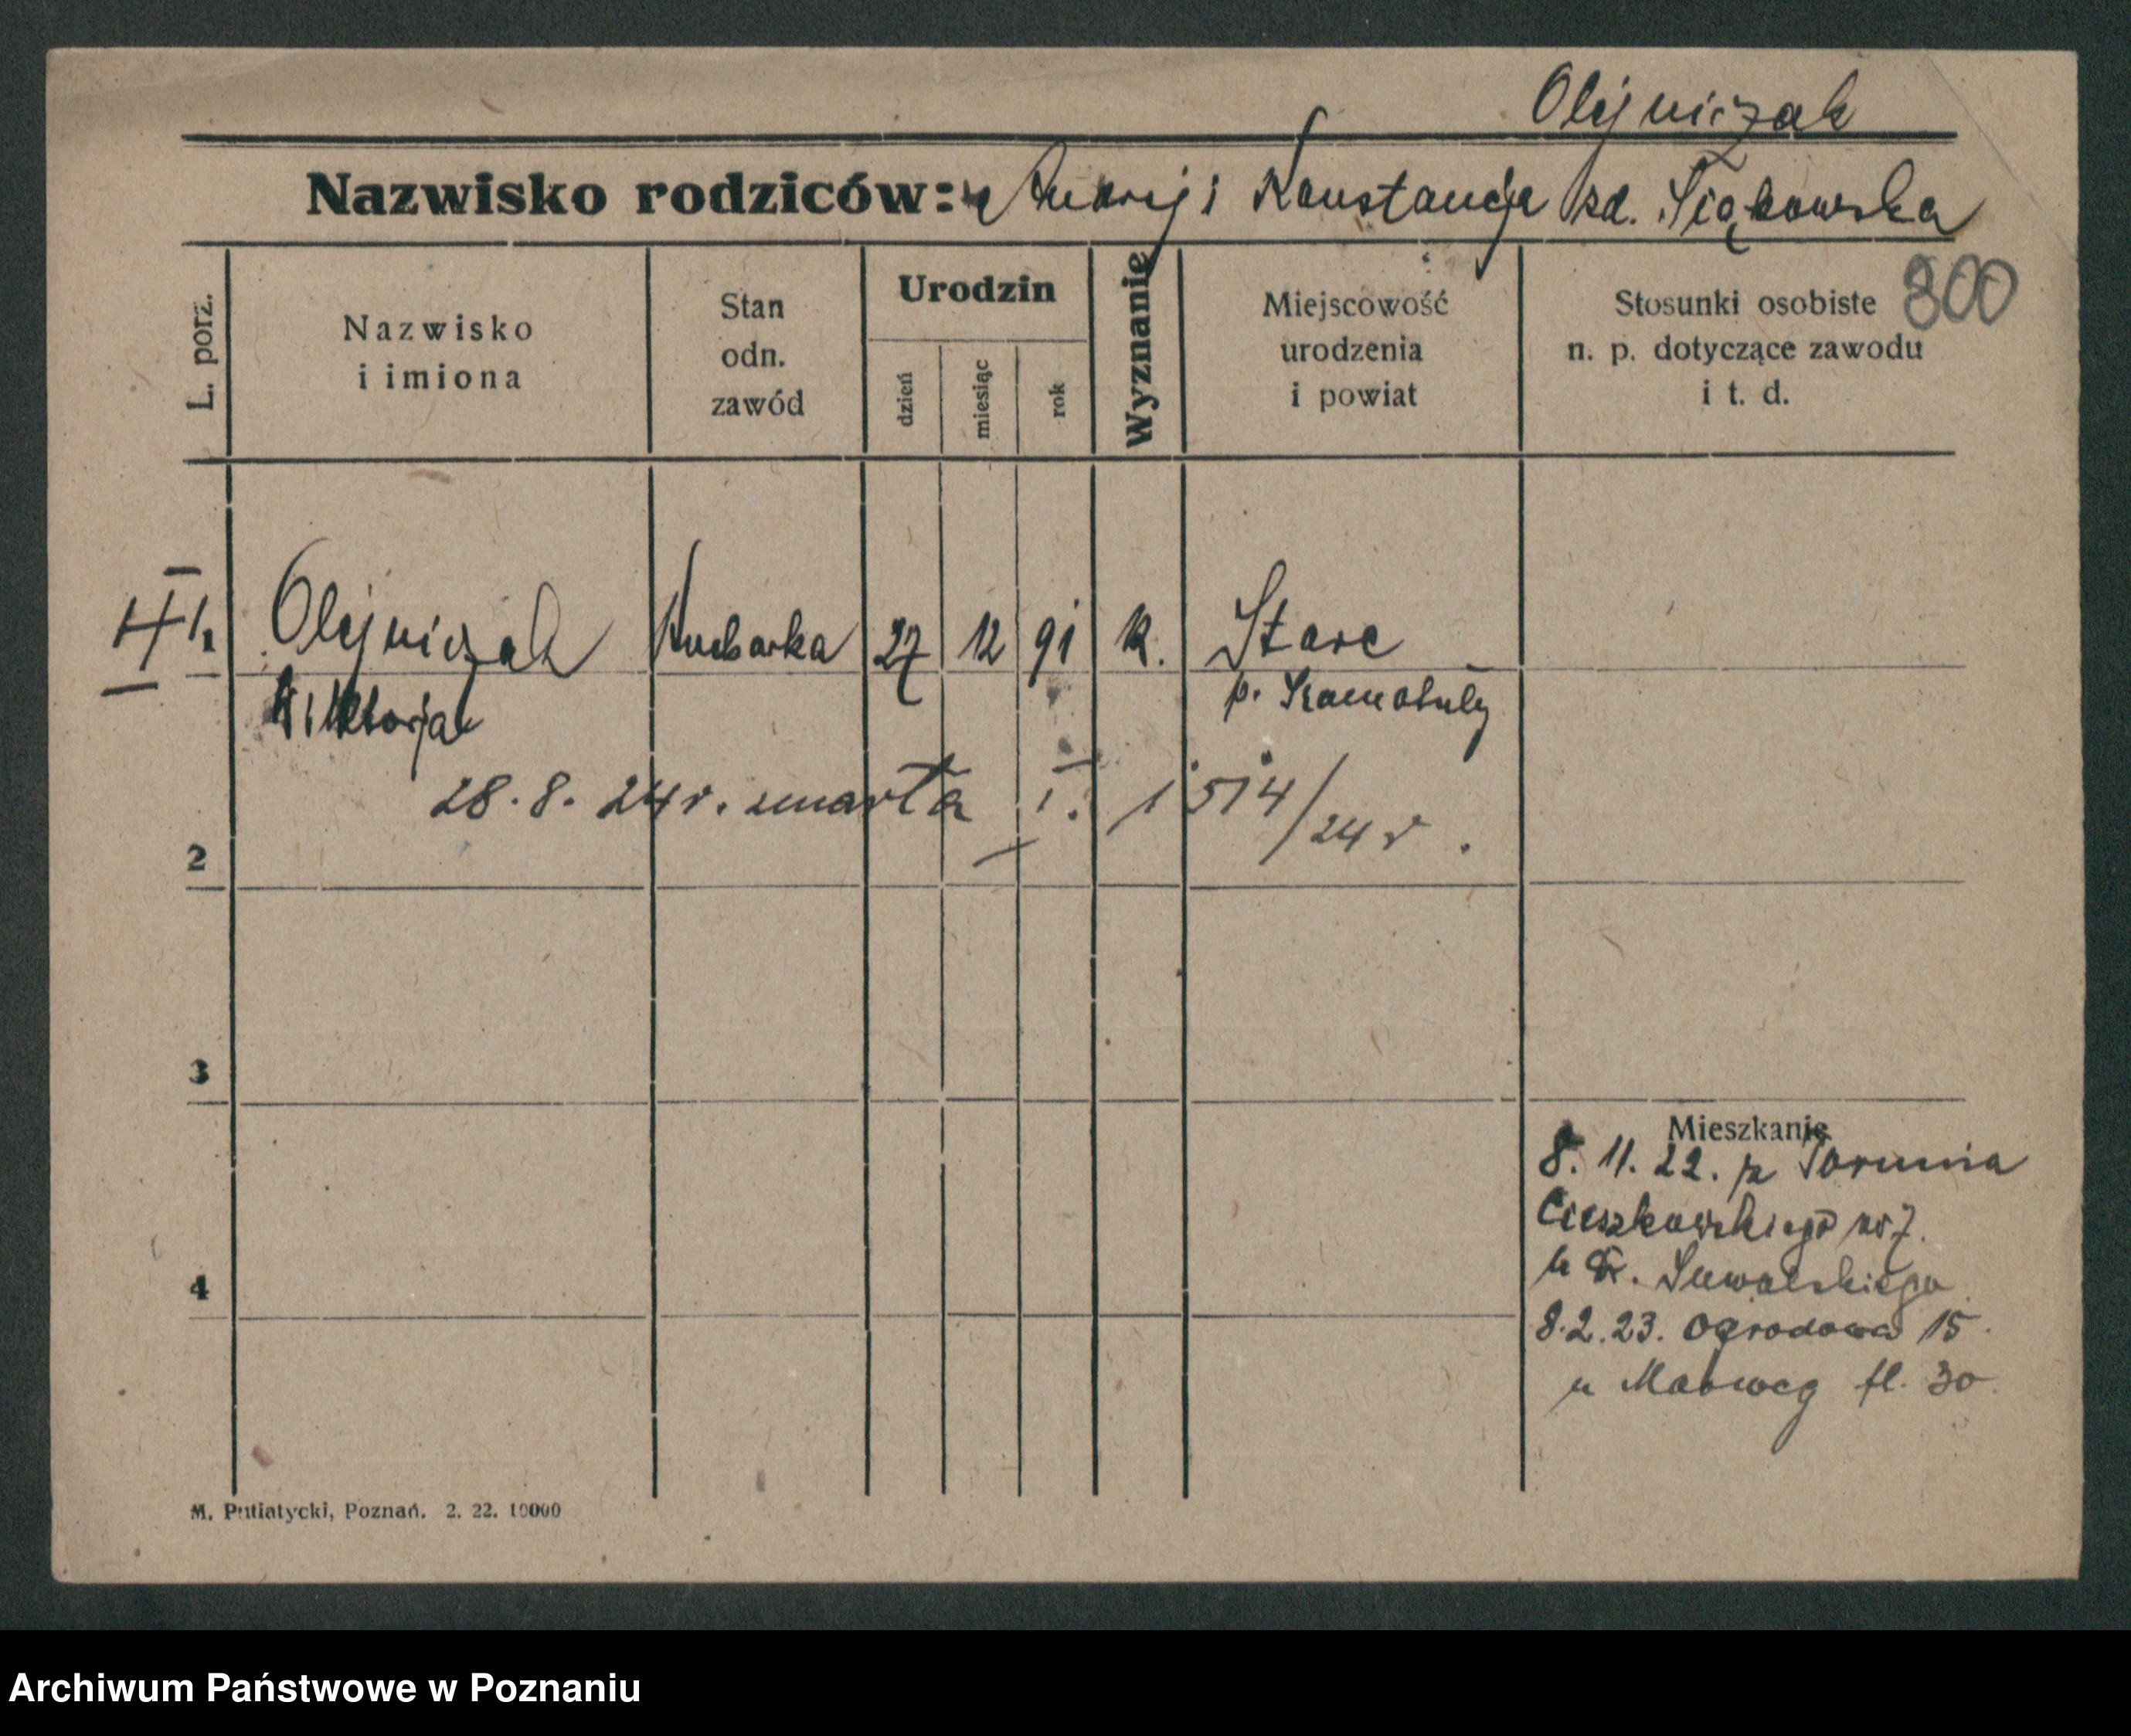 Olejniczak
Nazwisko rodziców: Andrzej i Konstancja zd.
L. porz.
Nazwisko
i imiona
Stan
odn.
zawód
Urodzin
dzień
miesiąc
rok
Wyznanie
Miejscowość
urodzenia
i powiat
Stosunki osobiste
n. p. dotyczące zawodu
i t. d.
300
1. Olejniczak Kucharka 27 12 91 k. Stare
Wiktorja p. Szamotuły
28. 8. 24 r. zmarła I. 1514/24 r.
2
3
4
Mieszkanie
8. 11. 22. z Torunia
Cieszkowskiego nr 7.
u Dr. Suwalskiego
8. 2. 23. Ogrodowa 15
u
30
M. Putiatycki, Poznań. 2. 22. 10000
Archiwum Państwowe w Poznaniu